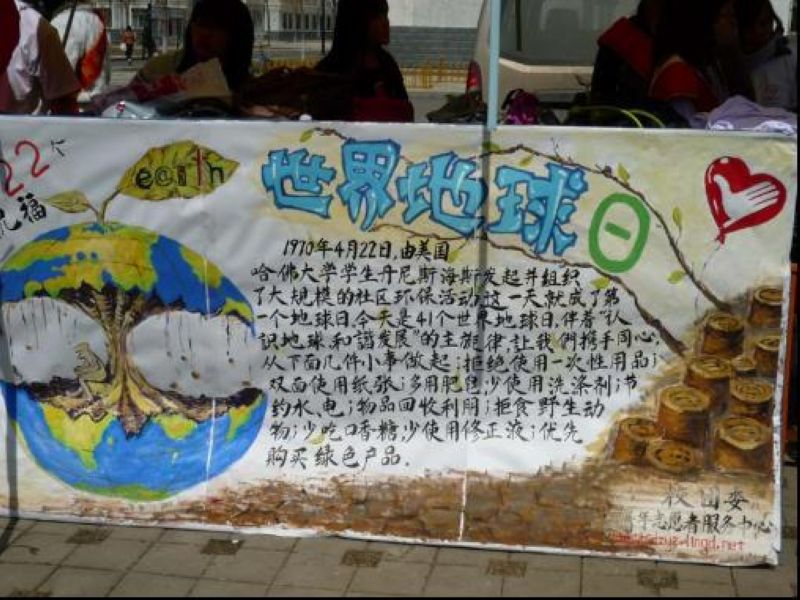 22
祝福
earth
世界地球日
1970年4月22日,由美国
哈佛大学学生丹尼斯海斯发起并组织
了大规模的社区环保活动,这一天就成了第
一个地球日.今天是41个世界地球日,伴着"认
识地球和谐发展"的主旋律,让我們携手同心,
从下面几件小事做起:拒绝使用一次性用品;
双面使用纸张;多用肥皂,少使用洗涤剂;节
约水、电;物品回收利用;拒食野生动
物;少吃口香糖,少使用修正液;优先
购买绿色产品.
校团委
青年志愿者服务中心